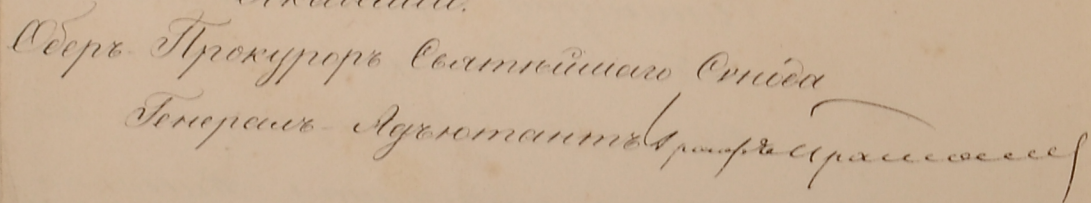 Оберъ Прокуроръ Святѣйшаго Сѵнода
Генералъ-Адъютантъ Графъ